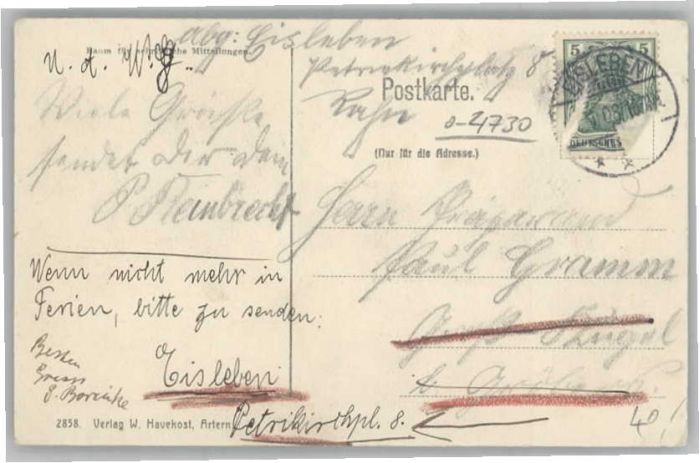 abg: Eisleben
Petrikirchplatz 8
Raum für schriftliche Mitteilungen.
U. A. W. g.
Postkarte.
Rahn
o-4730
(Nur für die Adresse.)
5 5
EISLEBEN
DEUTSCHES
Viele Grüße
sendet Dir dein
P. Steinbrecht
Herrn Präparand
Paul Gramm
Groß Kügel
b. Gröbers.
Wenn nicht mehr in
Ferien, bitte zu senden:
Eisleben
Petrikirchpl. 8.
Besten
Gruss
2858. Verlag W. Havekost, Artern
40